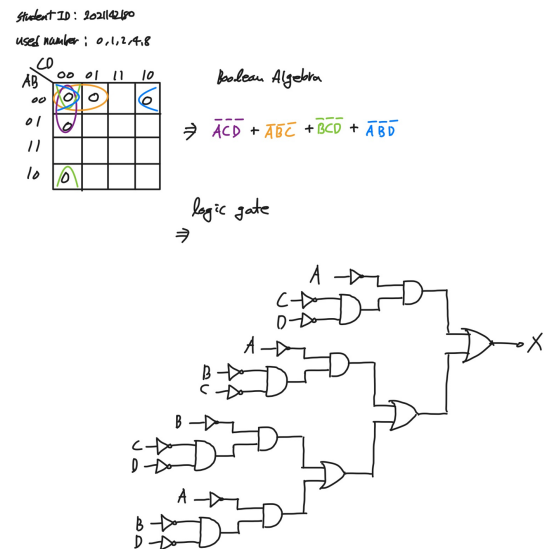 Student ID : 202114280
used number ; 0,1,2,4,8
CD
AB 00 01 11 10
00 0 0 0
01 0
11
10 0
Boolean Algebra
⇒ A̅C̅D̅ + A̅B̅C̅ + B̅C̅D̅ + A̅B̅D̅
logic gate
⇒
A
C
D
X
A
B
C
B
C
D
A
B
D